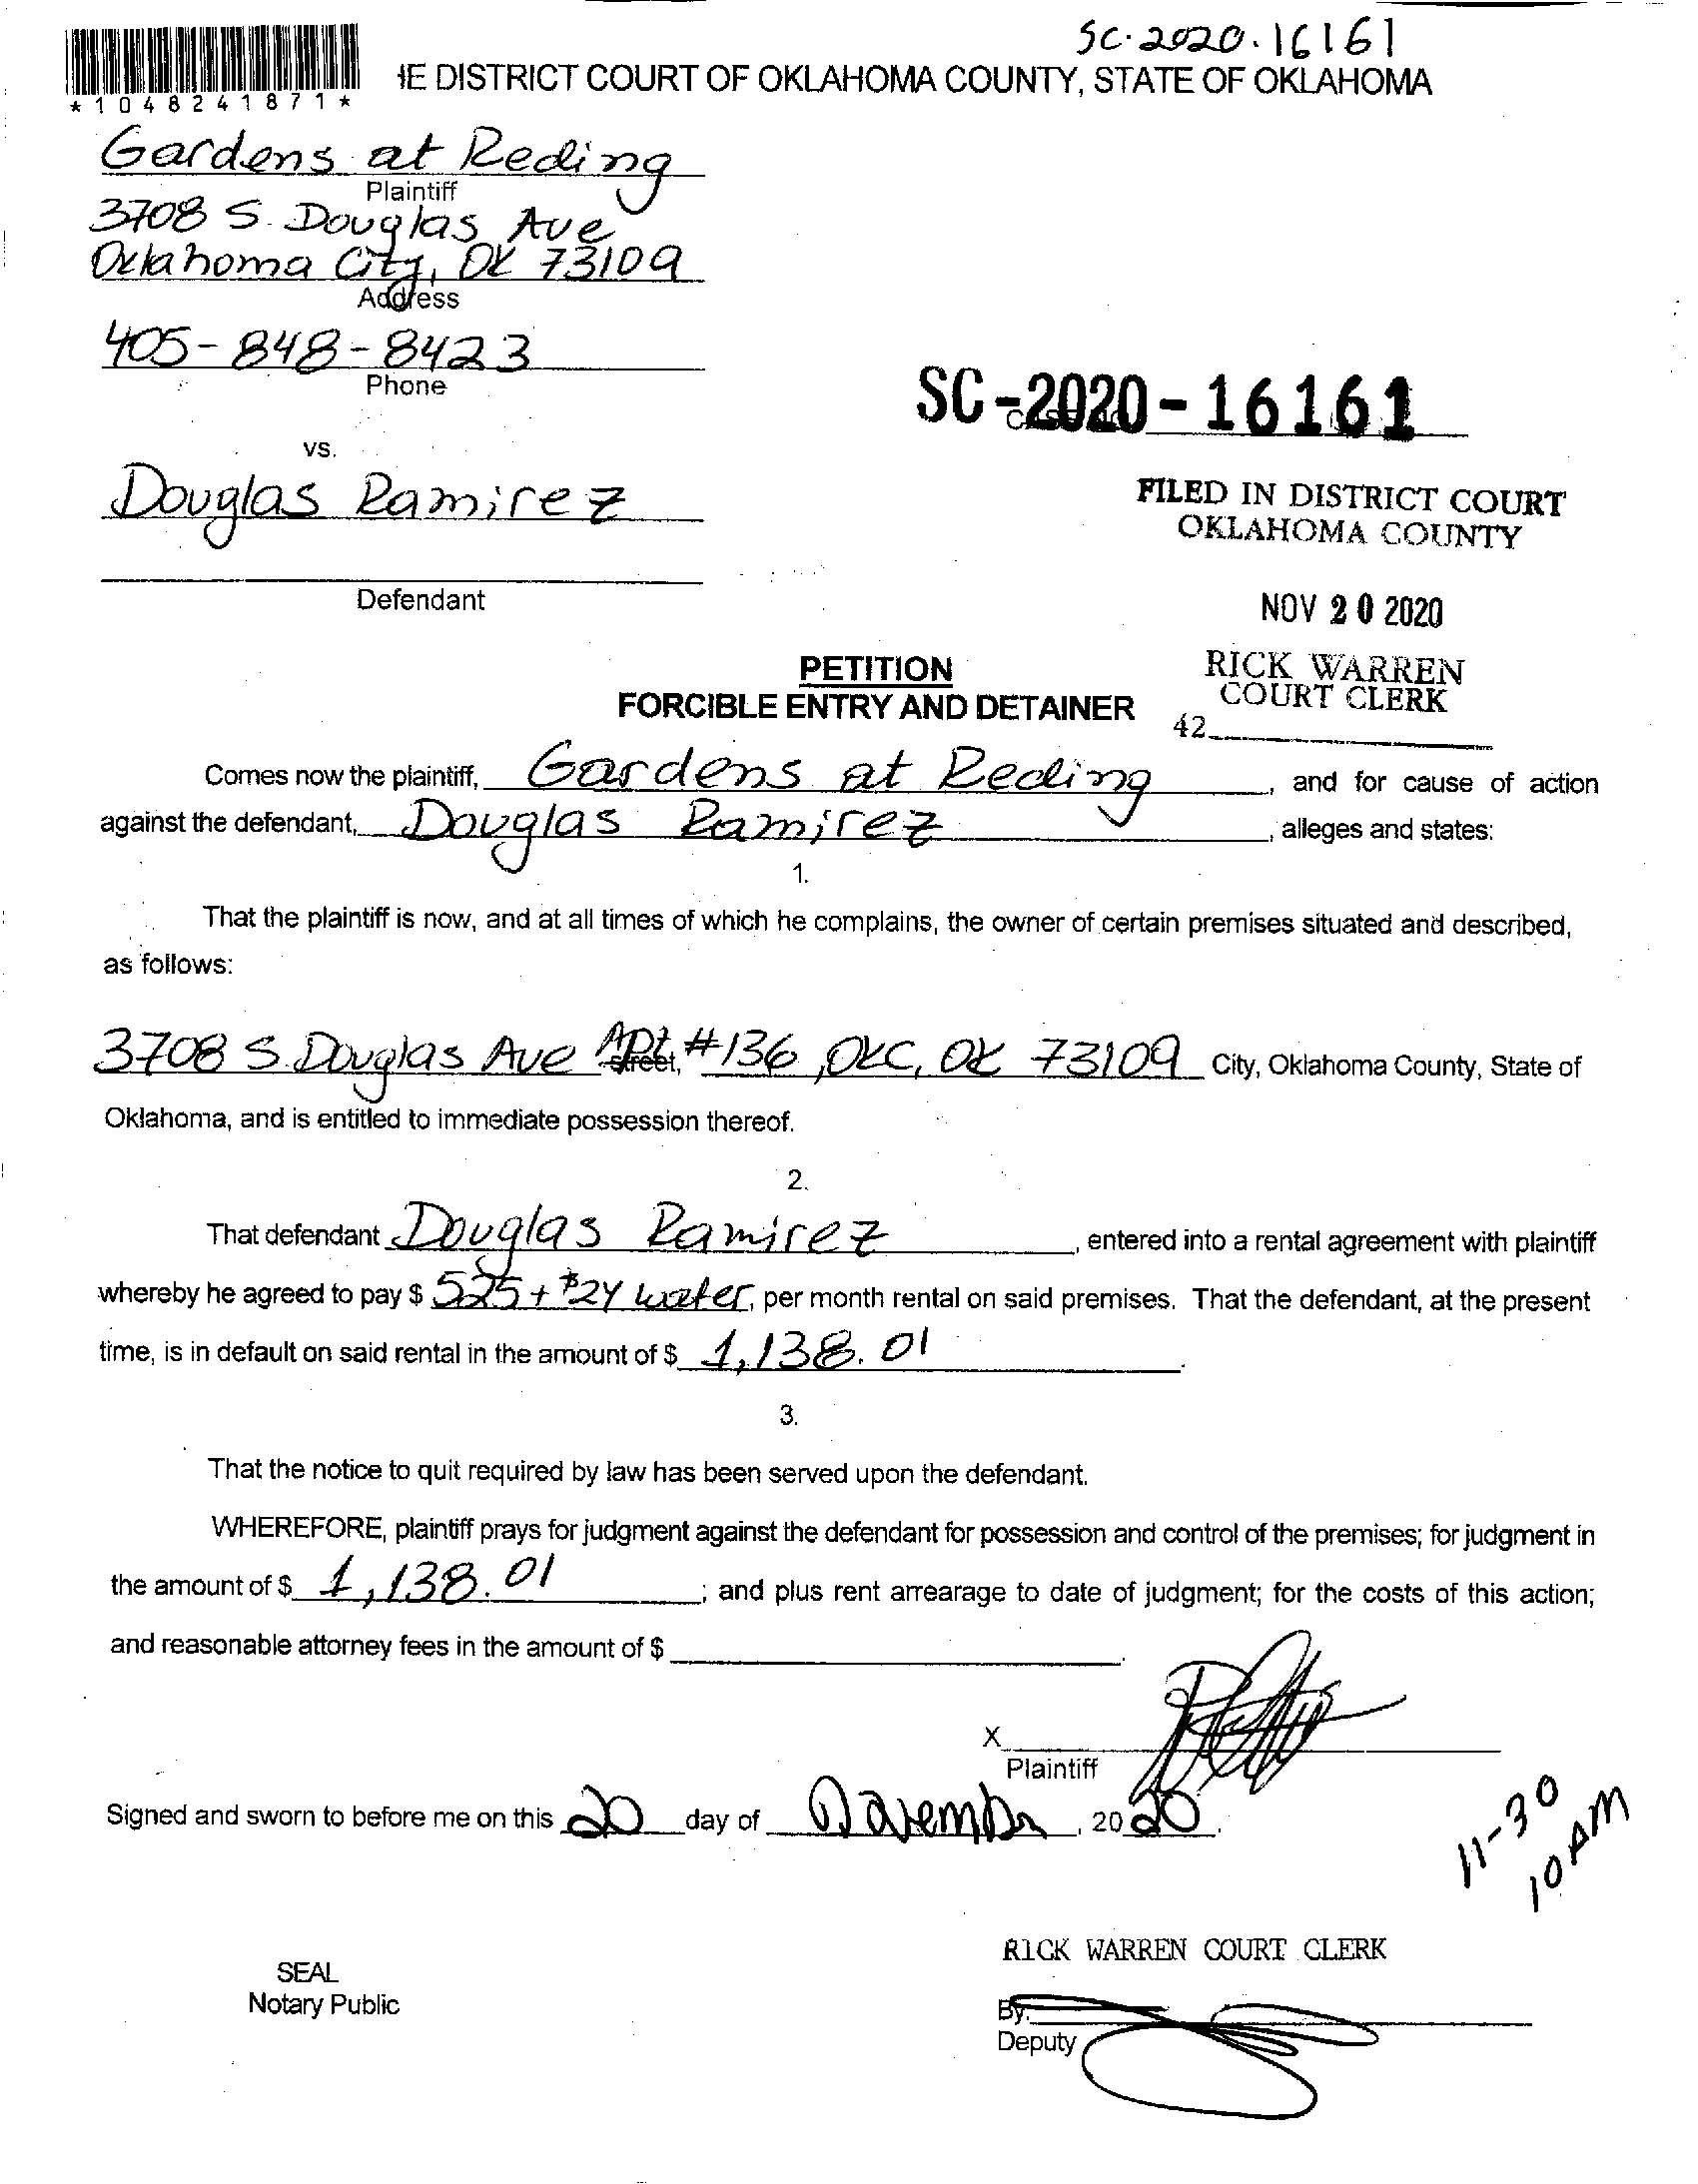 SC-2020-16161
IE DISTRICT COURT OF OKLAHOMA COUNTY, STATE OF OKLAHOMA
*1048241871*
Gardens at Reding
Plaintiff
3708 S. Douglas Ave
Oklahoma City, OK 73109
Address
405-848-8423
Phone
SC-2020-16161
vs.
Douglas Ramirez
FILED IN DISTRICT COURT
OKLAHOMA COUNTY
Defendant
NOV 20 2020
PETITION
FORCIBLE ENTRY AND DETAINER
RICK WARREN
COURT CLERK
42
Comes now the plaintiff, Gardens at Reding, and for cause of action
against the defendant, Douglas Ramirez, alleges and states:
1.
That the plaintiff is now, and at all times of which he complains, the owner of certain premises situated and described,
as follows:
3708 S. Douglas Ave Apt, #136, OKC, OK 73109 City, Oklahoma County, State of
Street,
Oklahoma, and is entitled to immediate possession thereof.
2.
That defendant Douglas Ramirez, entered into a rental agreement with plaintiff
whereby he agreed to pay $ 525 + $24 water, per month rental on said premises. That the defendant, at the present
time, is in default on said rental in the amount of $ 1,138.01.
3.
That the notice to quit required by law has been served upon the defendant.
WHEREFORE, plaintiff prays for judgment against the defendant for possession and control of the premises; for judgment in
the amount of $ 1,138.01; and plus rent arrearage to date of judgment; for the costs of this action;
and reasonable attorney fees in the amount of $
X
Plaintiff
Signed and sworn to before me on this 20 day of November, 2020.
11-30
10 AM
RICK WARREN COURT CLERK
SEAL
Notary Public
By:
Deputy